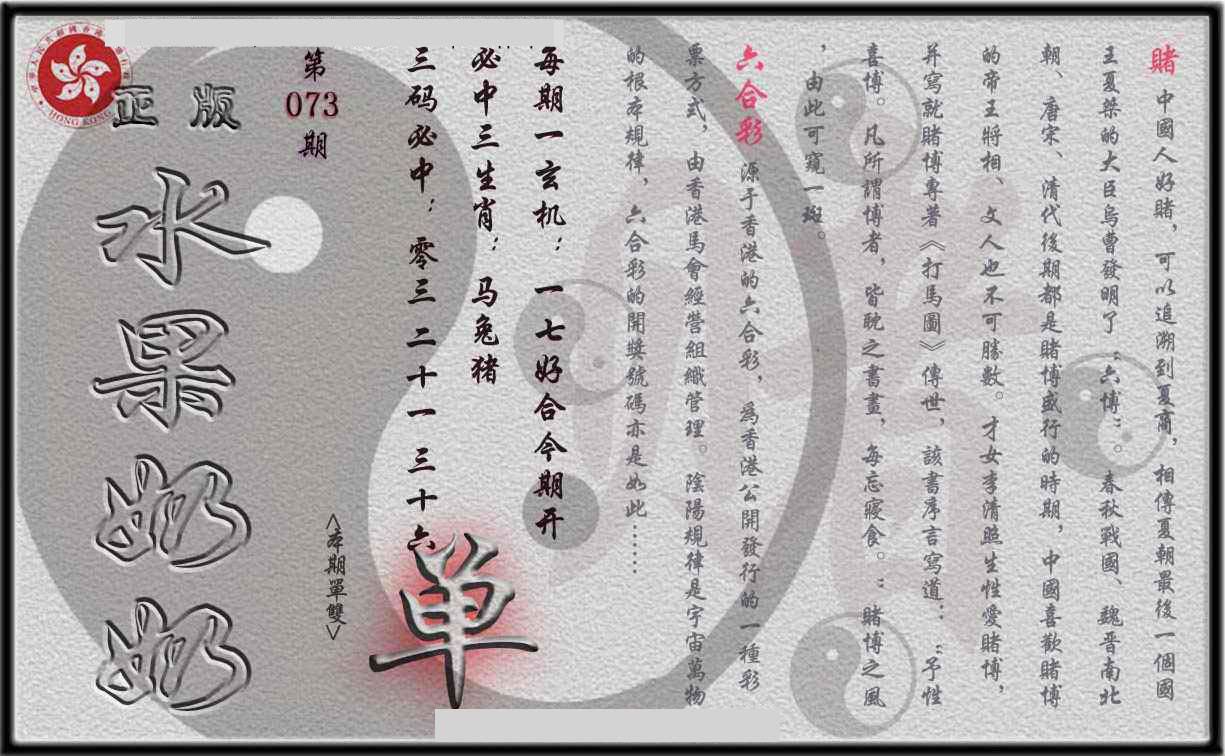 賭 中國人好賭，可以追溯到夏商，相傳夏朝最後一個國
王夏桀的大臣烏曹發明了“六博”。春秋戰國、魏晋南北
朝、唐宋、清代後期都是賭博盛行的時期，中國喜歡賭博
的帝王將相、文人也不可勝數。才女李清照生性愛賭博，
并寫就賭博專著《打馬圖》傳世，該書序言寫道：“予性
喜博。凡所謂博者，皆耽之書畫，每忘寢食。”賭博之風
，由此可窺一斑。
六合彩 源于香港的六合彩，為香港公開發行的一種彩
票方式，由香港馬會經營組織管理。陰陽規律是宇宙萬物
的根本規律，六合彩的開獎號碼亦是如此……
每期一玄机：一七好合今期开
必中三生肖：马兔猪
三码必中：零三 二十一 三十六
<本期單雙>
单
第
073
期
正版
水果奶奶
HONG KONG